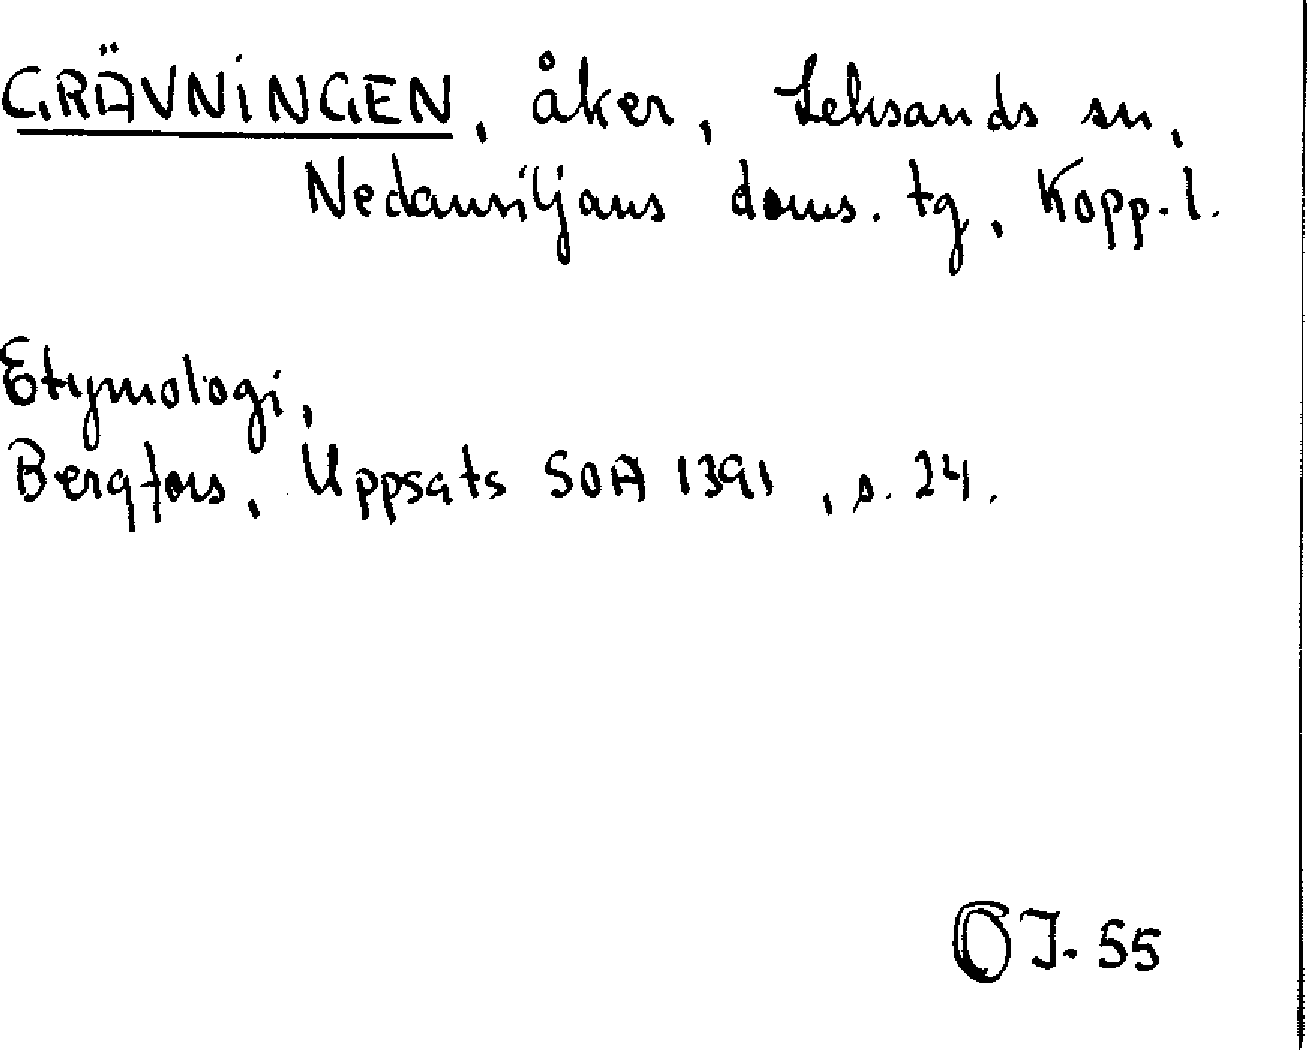 GRÄVNINGEN, åker, Leksands sn,
Nedansiljans doms. tg, Kopp. l.
Etymologi,
Bergfors, Uppsats SOA 1391, s. 24.
OJ. 55